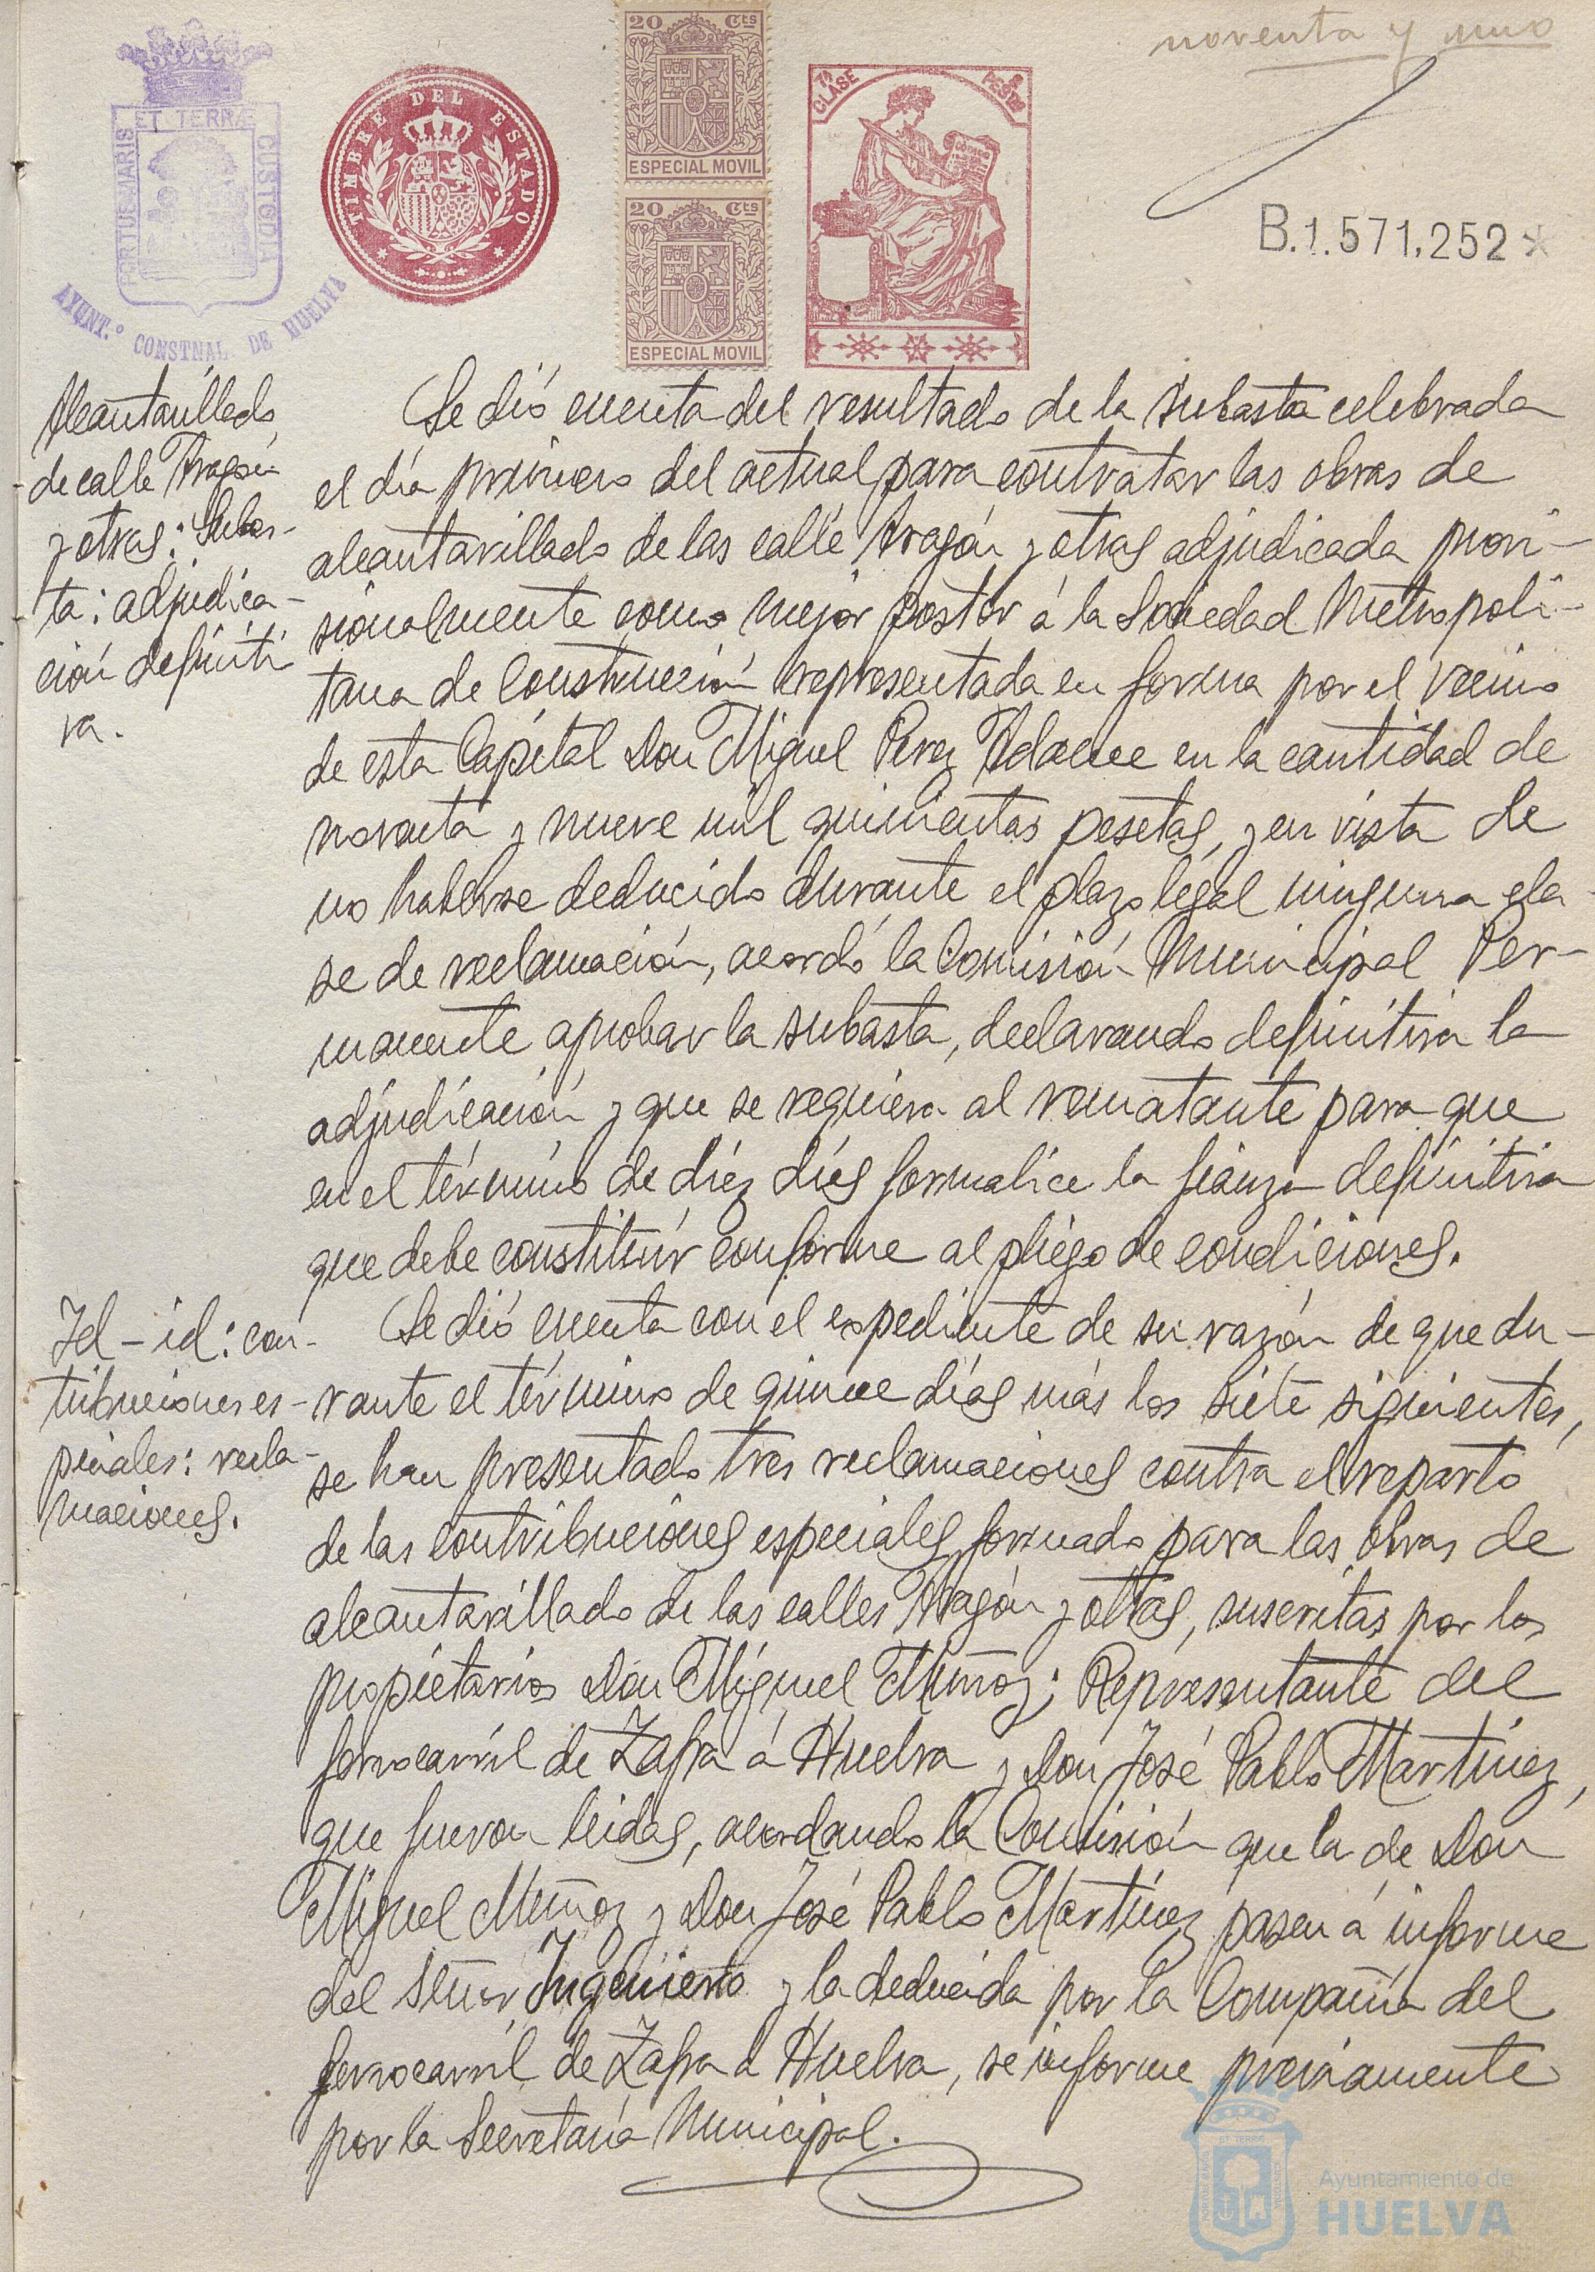 noventa y uno
PORTUS MARIS
ET TERRÆ
CUSTODIA
AYUNT.º CONSTNAL DE HUELVA
TIMBRE DEL ESTADO
20 Cts
ESPECIAL MOVIL
20 Cts
ESPECIAL MOVIL
CLASE
B.1.571,252*
Alcantarillado
de calle Aragón
y otras: Subas-
ta: adjudica-
ción definiti
va.
Se dió cuenta del resultado de la subasta celebrada
el día primero del actual para contratar las obras de
alcantarillado de las calle Aragón y otras adjudicada provi-
sionalmente como mejor postor á la Sociedad Metropoli-
tana de Construcción representada en forma por el vecino
de esta Capital Don Miguel Perez Adame en la cantidad de
noventa y nueve mil quinientas pesetas, y en vista de
no haberse deducido durante el plazo legal ninguna cla-
se de reclamación, acordó la Comisión Municipal Per-
manente aprobar la subasta, declarando definitiva la
adjudicación y que se requiera al rematante para que
en el término de diez días formalice la fianza definitiva
que debe constituír conforme al pliego de condiciones.
Id-id: con-
tribuciones es-
peciales: recla-
maciones.
Se dió cuenta con el expediente de su razón de que du-
rante el término de quince días más los siete siguientes,
se han presentado tres reclamaciones contra el reparto
de las contribuciones especiales formado para las obras de
alcantarillado de las calles Aragón y otras, suscritas por los
propietarios Don Miguel Muñoz; Representante del
ferrocarril de Zafra á Huelva y Don José Pablo Martínez,
que fueron leidas, acordando la Comisión que la de Don
Miguel Muñoz y Don José Pablo Martínez pasen á informe
del señor Ingeniero y la deducida por la Compañía del
ferrocarril de Zafra á Huelva, se informe previamente
por la Secretaría Municipal.
Ayuntamiento de
HUELVA